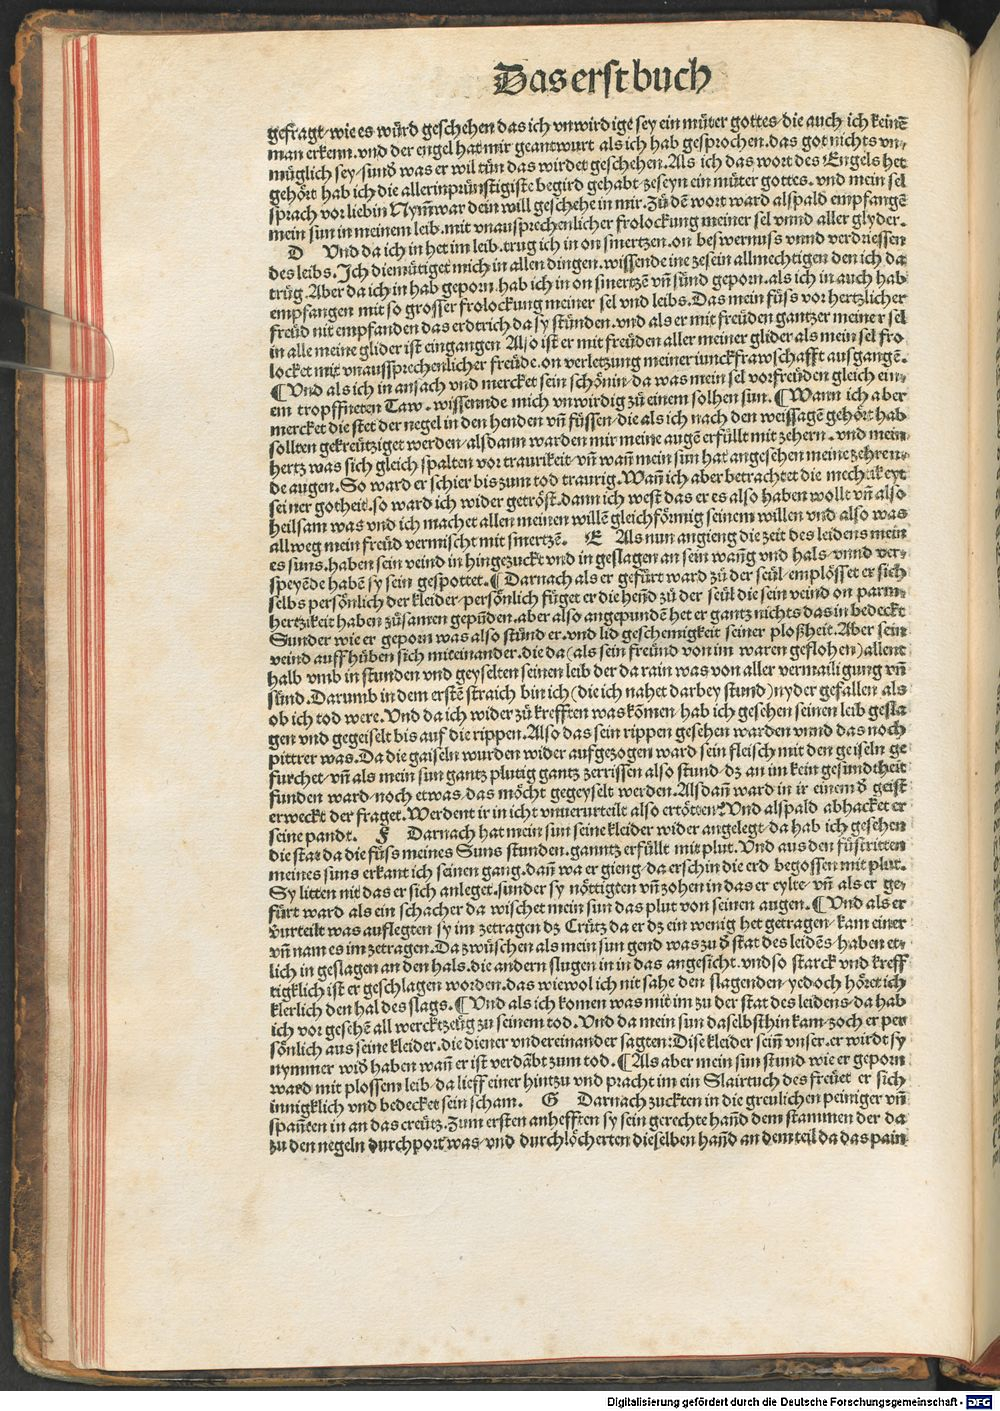 Das erst buch
gefragt/wie es würd geschehen das ich vnwirdige sey ein müter gottes/die auch ich keinē
man erkenn.vnd der engel hat mir geantwurt als ich hab gesprochen.das got nichts vn-
müglich sey/sunď was er wil tün das wirdet geschehen.Als ich das wort des Engels het
gehört hab ich die allerinprünstigiste begird gehabt zeseyn ein müter gottes.vnd mein sel
sprach vor lieb in Nym̄ war dein will geschehe in mir.Zů dē wort ward alspald empfangē
mein sun in meinem leib.mit vnausprechenlicher frolockung meiner sel vnnd aller glyder.
D Vnd da ich in het im leib.trug ich in on smertzen.on beswernuss vnnd verdriessen
des leibs.Ich diemütiget mich in allen dingen.wissende ine zesein allmechtigen den ich da
trüg.Aber da ich in hab geporn.hab ich in on smertzē vn̄ sünd geporn.als ich in auch hab
empfangen mit so grosser frolockung meiner sel vnd leibs.Das mein füss vor hertzlicher
freüd nit empfanden das erdtrich da sy stünden.vnd als er mit freüden gantzer meiner sel
in alle meine glider ist eingangen Also ist er mit freüden aller meiner glider als mein sel fro
locket mit vnaussprechenlicher freüde.on verletzung meiner iunckfrawschafft ausgangē.
¶Vnd als ich in ansach vnd mercket sein schönin/da was mein sel vor freüden gleich ein-
em tropffneten Taw.wissennde mich vnwirdig zü einem solhen sun.¶Wann ich aber
mercket die stet der negel in den henden vn̄ füssen/die als ich nach den weissagē gehört hab
sollten gekreütziget werden/alsdann warden mir meine augē erfüllt mit zehern.vnd mein
hertz was sich gleich spalten vor traurikeit/vn̄ wan̄ mein sun hat angesehen meine zehren-
de augen.So ward er schier bis zum tod traurig.Wan̄ ich aber betrachtet die mechtikeyt
seiner gotheit.so ward ich wider getröst.dann ich west das er es also haben wollt vn̄ also
heilsam was vnd ich machet allen meinen willē gleichförmig seinem willen vnd also was
allweg mein freüd vermischt mit smertzē. E Als nun angieng die zeit des leidens mein
es suns.haben sein veind in hingezuckt vnd in geslagen an sein wan̄g vnd hals/vnnd ver-
speyēde habē sy sein gespottet.¶Darnach als er gefürt ward zü der seül/emplösset er sich
selbs persönlich der kleider/persönlich füget er die hend̄ zü der seül die sein veind on parm-
hertzikeit haben züsamen gepūden.aber also angepundē het er gantz nichts das in bedeckt
Sunder wie er geporn was also stünd er.vnd lid geschemigkeit seiner ploßheit.Aber sein
veind auff hüben sich miteinander.die da(als sein freünd von im waren geflohen)allent
halb vmb in stunden vnd geyselten seinen leib der da rain was von aller vermailigung vn̄
sünd.Darumb in dem erstē straich bin ich(die ich nahet darbey stund)nyder gefallen als
ob ich tod were.Vnd da ich wider zü krefften was kōmen/hab ich gesehen seinen leib gesla
gen vnd gegeiselt bis auf die rippen.Also das sein rippen gesehen warden vnnd das noch
pittrer was.Da die gaiseln wurden wider aufgezogen ward sein fleisch mit den geiseln ge
furchet/vn̄ als mein sun gantz plutig gantz zerrissen also stund/dz an im kein gesundtheit
funden ward/noch etwas/das möcht gegeyselt werden.Alsdan̄ ward in ir einem ď geist
erweckt der fraget.Werdent ir in icht vnuerurteilt also ertötten?Vnd alspald abhacket er
seine pandt. F Darnach hat mein sun seine kleider wider angelegt/da hab ich gesehen
die stat da die füss meines Suns stunden.ganntz erfüllt mit plut.Vnd aus den füstritten
meines suns erkant ich seinen gang.dan̄ wa er gieng/da erschin die erd begossen mit plut.
Sy litten nit das er sich anleget.sunder sy nöttigten vn̄ zohen in das er eylte/vn̄ als er ge-
fürt ward als ein schacher da wischet mein sun das plut von seinen augen.¶Vnd als er
v̄urteilt was auflegten sy im zetragen dz Crütz da er dz ein wenig het getragen/kam einer
vn̄ nam es im zetragen.Da zwüschen als mein sun gend was zu ď stat des leidēs/haben et-
lich in geslagen an den hals.die andern slugen in in das angesicht.vnd so starck vnd kreff
tigklich ist er geschlagen worden.das wiewol ich nit sahe den slagenden/yedoch höret ich
klerlich den hal des slags.¶Vnd als ich komen was mit im zu der stat des leidens/da hab
ich vor gesehē all werckzeüg zu seinem tod.Vnd da mein sun daselbsthin kam/zoch er per
sönlich aus seine kleider.die diener vndereinander sagten:Dise kleider sein̄ vnser.er wirdt sy
nymmer wiď haben wan̄ er ist verdābt zum tod.¶Als aber mein sun stund wie er geporn
ward mit plossem leib/da lieff einer hintzu vnd pracht im ein Slairtuch des freüet er sich
innigklich vnd bedecket sein scham. G Darnach zuckten in die greulichen peiniger vn̄
span̄ten in an das creütz.Zum ersten anhefften sy sein gerechte han̄d dem stammen der da
zu den negeln durchport was/vnd durchlöcherten dieselben han̄d an dem teil da das pain
Digitalisierung gefördert durch die Deutsche Forschungsgemeinschaft - DFG